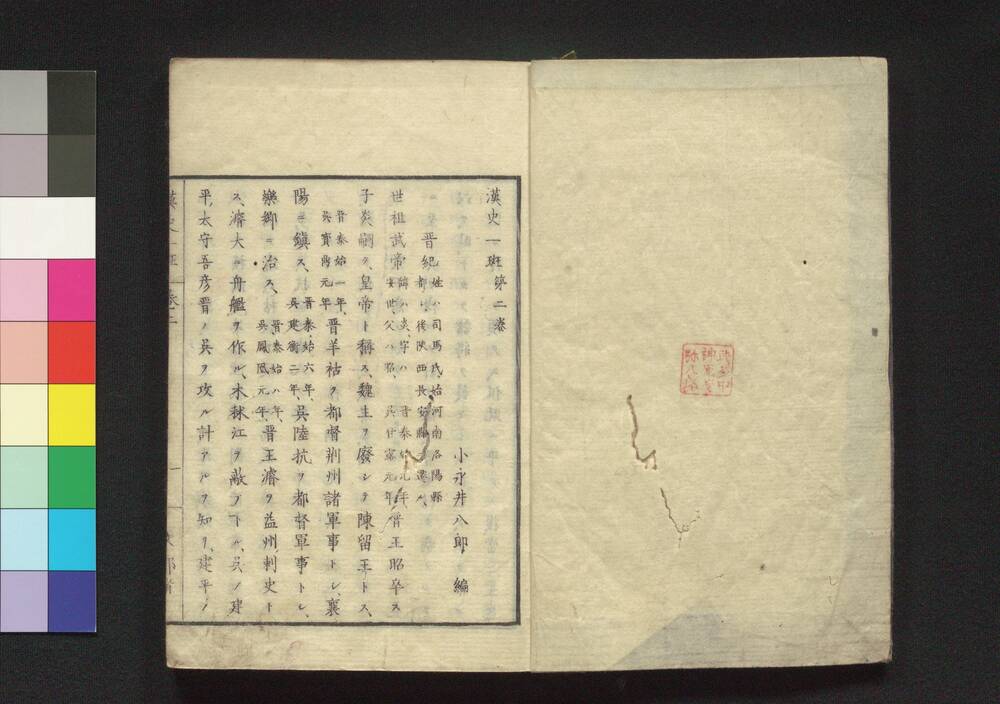 漢史一班第二卷
小永井八郎 編
晋紀 姓ハ司馬氏、始河南洛陽縣
都ス、後陝西長安縣ニ遷ル、
世祖武帝 諱ハ炎、字ハ
安世、父ハ昭、 晋泰始元年、
呉甘露元年、 晋王昭卒ス
子炎嗣ク、皇帝ト稱ス、魏主ヲ廢シテ陳留王トス、
晋泰始一年、
呉寶鼎元年 晋羊祜ヲ都督荊州諸軍事トシ、襄
陽ニ鎭ス、 晋泰始六年、
呉建衡二年、 呉陸抗ヲ都督軍事トシ、
樂鄉ニ治ス、 晋泰始八年、
呉鳳凰元年、 晋王濬ヲ益州刺史ト
ス、濬大ニ舟艦ヲ作ル、木柹江ヲ蔽フテ下ル、呉ノ建
平太守吾彦晋ノ呉ヲ攻ル計アルヲ知リ、建平ノ